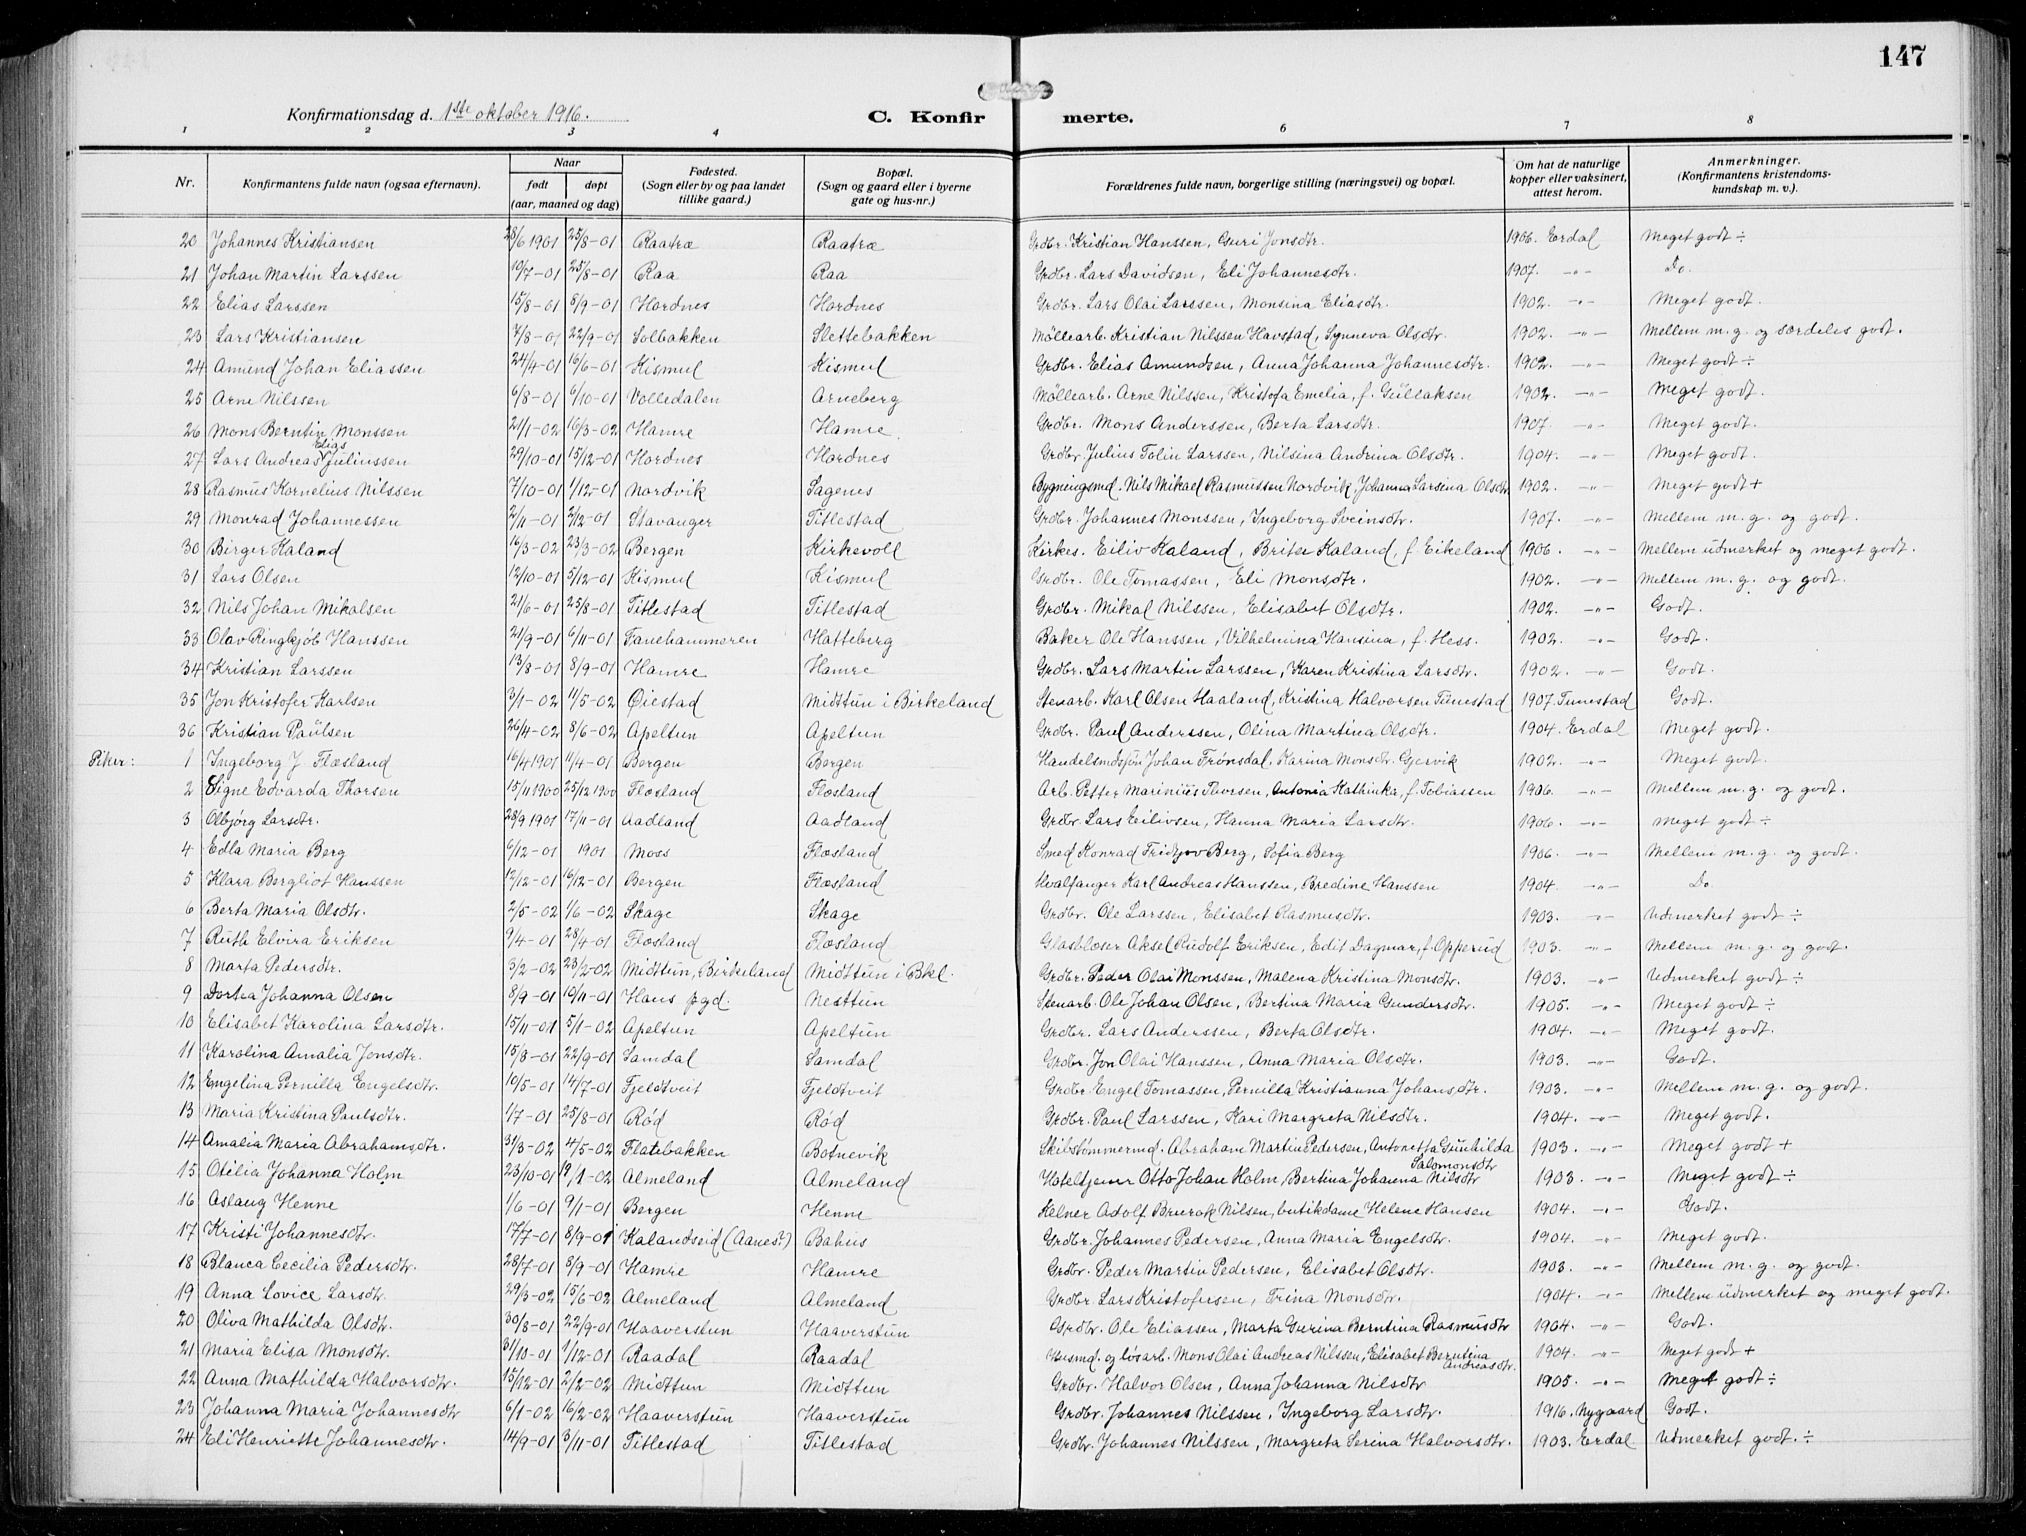 147
Konfirmationsdag d. 1ste oktober 1916.
C. Konfirmerte.
1 2 3 4 6 7 8
Nr. Konfirmantens fulde navn (ogsaa efternavn). Naar født døpt (aar, maaned og dag) Fødested. (Sogn eller by og paa landet tillike gaard.) Bopæl. (Sogn og gaard eller i byerne gate og hus-nr.) Forældrenes fulde navn, borgerlige stilling (næringsvei) og bopæl. Om hat de naturlige kopper eller vaksinert, attest herom. Anmerkninger. (Konfirmantens kristendomskundskap m. v.).
20 Johannes Kristiansen 28/6 1901 25/8-01 Raatræ Raatræ Grdbr. Kristian Hanssen, Guri Jonsdtr. 1906. Erdal Meget godt ÷
21 Johan Martin Larssen 10/7-01 25/8-01 Raa Raa Grdbr. Lars Davidsen, Eli Johannesdtr. 1907. -"- Do.
22 Elias Larssen 15/8-01 8/9-01 Hordnes Hordnes Grdbr. Lars Olai Larssen, Monsina Eliasdtr. 1902. -"- Meget godt.
23 Lars Kristiansen 7/8-01 22/9-01 Solbakken Slettebakken Møllearb. Kristian Nilssen Havstad, Synneva Olsdtr. 1902. -"- Mellem m. g. og særdeles godt.
24 Amund Johan Eliassen 24/4-01 16/6-01 Kismul Kismul Grdbr. Elias Amundsen, Anna Johanna Johannesdtr. 1902. -"- Meget godt ÷
25 Arne Nilssen 6/8-01 6/10-01 Volledalen Arneberg Møllearb. Arne Nilssen, Kristofa Emelia, f. Gullaksen 1902. -"- Meget godt.
26 Mons Berntin Monssen 21/1-02 16/3-02 Hamre Hamre. Grdbr. Mons Anderssen, Berta Larsdtr. 1907. -"- Meget godt.
27 Lars Andreas Elias Juliussen 29/10-01 15/12-01 Hordnes Hordnes Grdbr. Julius Tolin Larssen, Nilsina Andrina Olsdtr. 1904. -"- Meget godt.
28 Rasmus Kornelius Nilssen 7/10-01 1/12-01 Nordvik Sagenes Bygningsmd. Nils Mikael Rasmussen Nordvik, Johanna Larsina Olsdtr 1902. -"- Meget godt +
29 Monrad Johannessen 2/11-01 2/12-01 Stavanger Titlestad Grdbr. Johannes Monssen, Ingeborg Sveinsdtr. 1907. -"- Mellem m. g. og godt.
30 Birger Kaland 16/3-02 23/3-02 Bergen Kirkevoll Kirkes. Eiliv Kaland, Brite Kaland, f. Eikeland 1906. -"- Mellem udmerket og meget godt.
31 Lars Olsen 12/10-01 5/12-01 Kismul Kismul Grdbr. Ole Tomassen, Eli Monsdtr. 1902. -"- Mellem m. g. og godt.
32 Nils Johan Mikalsen 21/6-01 25/8-01 Titlestad Titlestad Grdbr. Mikal Nilssen, Elisabet Olsdtr. 1902. -"- Godt.
33 Olav Ringkjøb Hanssen 21/9-01 6/11-01 Fanehammeren Hatteberg Baker Ole Hanssen, Vilhelmina Hansina, f. Hess. 1902. -"- Godt.
34 Kristian Larssen 13/8-01 8/9-01 Hamre Hamre Grdbr. Lars Martin Larssen, Karen Kristina Larsdtr. 1902. -"- Godt.
35 Jon Kristofer Karlsen 3/1-02 11/5-02 Øiestad Midttun i Birkeland Stenarb. Karl Olsen Haaland, Kristina Halvorsen Tunestad 1907. Tunestad Godt.
36 Kristian Paulsen 26/4-02 8/6-02 Apeltun Apeltun Grdbr. Paul Anderssen, Olina Martina Olsdtr. 1904. Erdal Meget godt.
Piker: 1 Ingeborg J. Flæsland 16/4 1901 11/4-01 Bergen Bergen Handelsmdsjøn Johan Trønsdal, Karina Monsdtr. Gjervik 1902. -"- Meget godt.
2 Signe Edvarda Thorsen 15/11 1900 25/12 1900 Flæsland Flæsland Arb. Petter Marinius Thorsen, Antonia Kathinka, f. Tobiassen 1906. -"- Mellem m. g. og godt.
3 Olbjørg Larsdtr. 28/9 1901 17/11-01 Aadland Aadland Grdbr. Lars Eilivsen, Hanna Maria Larsdtr. 1906. -"- Meget godt ÷
4 Edla Maria Berg 6/12-01 1901 Moss Flæsland Smed Konrad Fridtjov Berg, Sofia Berg 1906. -"- Mellem m. g. og godt.
5 Klara Bergliot Hanssen 12/12-01 16/12-01 Bergen Flæsland Hvalfanger Karl Andreas Hanssen, Bredine Hanssen 1904. -"- Do
6 Berta Maria Olsdtr. 2/5-02 1/6-02 Skage Skage Grdbr. Ole Larssen, Elisabet Rasmusdtr. 1903. -"- Udmerket godt ÷
7 Ruth Elvira Eriksen 9/4-01 28/4-01 Flæsland Flæsland Glasblæser Aksel Rudolf Eriksen, Edit Dagmar, f. Opperud 1903. -"- Mellem m. g. og godt.
8 Marta Pedersdtr. 3/2-02 23/2-02 Midttun, Birkeland Midttun i Bkl. Grdbr. Peder Olai Monssen, Malena Kristina Monsdtr. 1903. -"- Udmerket godt ÷
9 Dortea Johanna Olsen 8/9-01 10/11-01 Haus pgd. Nesttun Stenarb. Ole Johan Olsen, Bertina Maria Gundersdtr. 1905. -"- Meget godt ÷
10 Elisabet Karolina Larsdtr. 15/11-01 5/1-02 Apeltun Apeltun Grdbr. Lars Anderssen, Berta Olsdtr. 1904. -"- Meget godt.
11 Karolina Amalia Jonsdtr. 15/8-01 22/9-01 Samdal Samdal Grdbr. Jon Olai Hanssen, Anna Maria Olsdtr. 1903. -"- Godt.
12 Engelina Pernilla Engelsdtr. 10/5-01 14/7-01 Fjeldtveit Fjeldtveit Grdbr. Engel Tomassen, Pernilla Kristianna Johansdtr. 1903. -"- Mellem m. g. og godt.
13 Maria Kristina Paulsdtr. 1/7-01 25/8-01 Rød Rød Grdbr. Paul Larssen, Kari Margreta Nilsdtr. 1904. -"- Meget godt.
14 Amalia Maria Abrahamsdtr. 31/3-02 4/5-02 Flatebakken Botnevik Skibstømmermd. Abraham Martin Pedersen, Antonetta Gunhilda Salomonsdtr 1903. -"- Meget godt +
15 Otilia Johanna Holm 23/10-01 19/1-02 Almeland Almeland Hoteltjener Otto Johan Holm, Bertina Johanna Nilsdtr 1903. -"- Meget godt ÷
16 Aslaug Henne 1/6-01 9/1-01 Bergen Henne Kelner Adolf Nilsen, butikdame Helene Hansen 1904. -"- Godt.
17 Kristi Johannesdtr. 17/7-01 8/9-01 Kalandseid (Aanes?) Bahus Grdbr. Johannes Pedersen, Anna Maria Engelsdtr. 1904. -"- Meget godt.
18 Blanca Cecilia Pedersdtr. 28/7-01 8/9-01 Hamre Hamre Grdbr. Peder Martin Pedersen, Elisabet Olsdtr. 1903. -"- Mellem m. g. og godt.
19 Anna Lovice Larsdtr. 29/3-02 15/6-02 Almeland Almeland Grdbr. Lars Kristofersen, Trina Monsdtr. 1904. -"- Mellem udmerket og meget godt.
20 Oliva Mathilda Olsdtr. 30/8-01 22/9-01 Haaverstun Haaverstun Grdbr. Ole Eliassen, Marta Gurina Berntina Rasmusdtr 1904. -"- Godt.
21 Maria Elisa Monsdtr. 31/10-01 1/12-01 Raadal Raadal Husmd. og løsarb. Mons Olai Andreas Nilssen, Elisabet Berntina Andreasdtr. 1904. -"- Meget godt +
22 Anna Mathilda Halvorsdtr. 15/12-01 2/2-02 Midttun Midttun Grdbr. Halvor Olsen, Anna Johanna Nilsdtr 1905. -"- Meget godt ÷
23 Johanna Maria Johannesdtr 6/1-02 16/2-02 Haaverstun Haaverstun Grdbr. Johannes Nilssen, Ingeborg Larsdtr. 1916. Nygaard Godt.
24 Eli Henriette Johannesdtr. 14/9-01 3/11-01 Titlestad Titlestad Grdbr. Johannes Nilssen, Margreta Serina Halvorsdtr. 1903. Erdal Udmerket godt. ÷